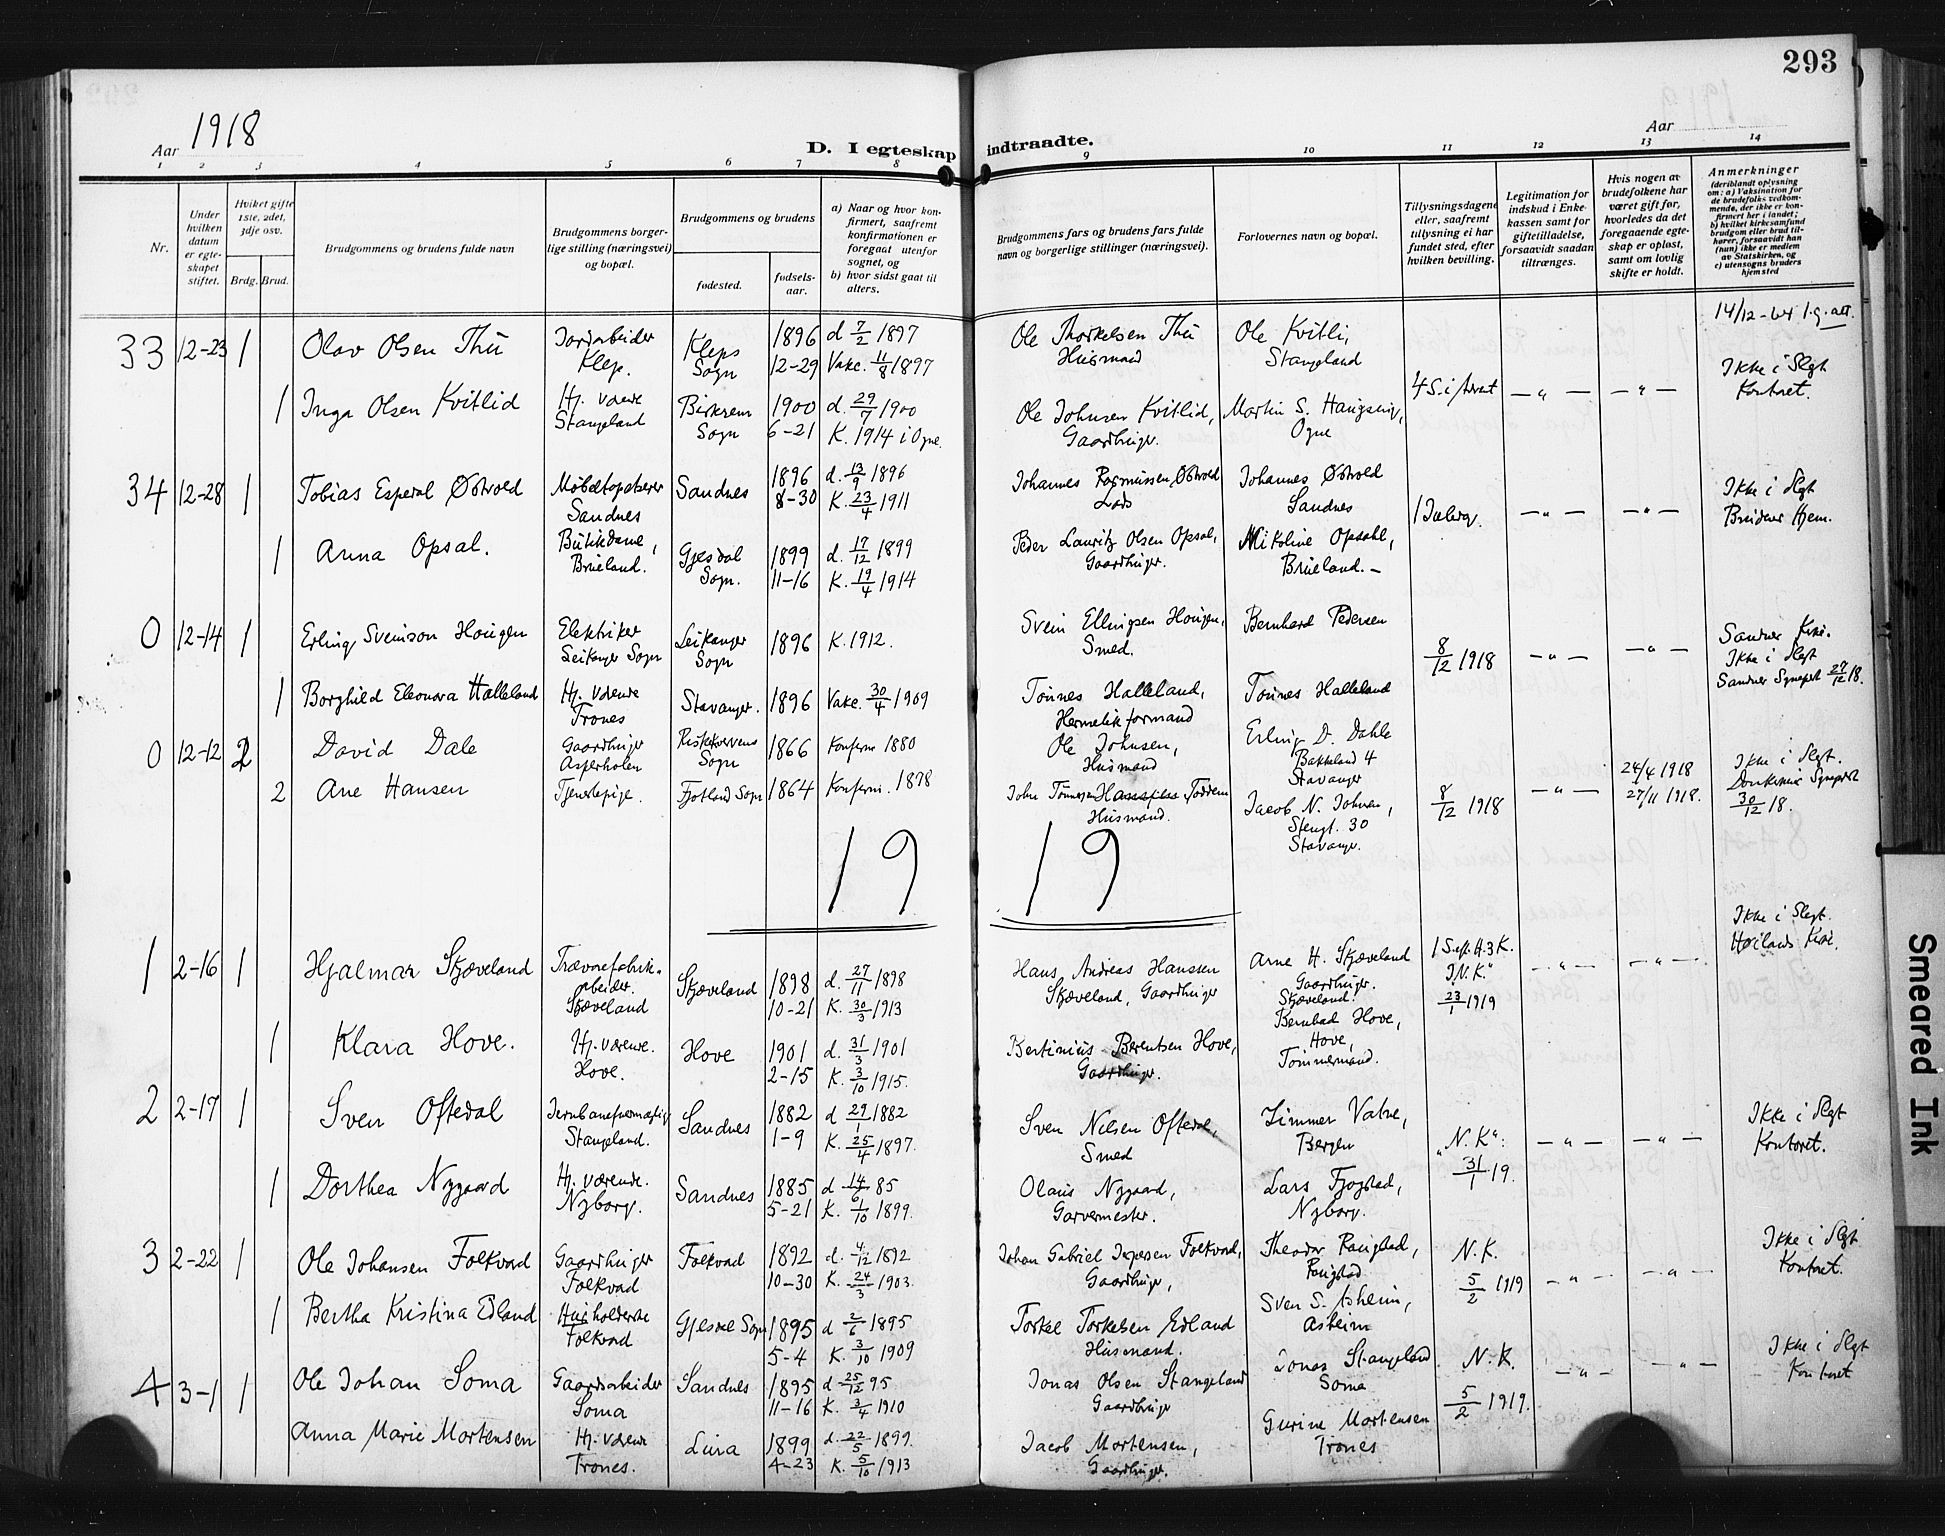 293
Aar 1918
D. I egteskap indtraadte.
Aar
1 2 3 4 5 6 7 8 9 10 11 12 13 14
Nr.
Under hvilken datum er egteskapet stiftet.
Hviket gifte 1ste, 2det, 3dje osv.
Brdg. Brud.
Brudgommens og brudens fulde navn
Brudgommens borgerlige stilling (næringsvei) og bopæl.
Brudgommens og brudens
fødested.
fødselsaar.
a) Naar og hvor konfirmert, saafremt konfirmationen er foregaat utenfor sognet, og
b) hvor sidst gaat til alters.
Brudgommens fars og brudens fars fulde navn og borgerlige stillinger (næringsvei).
Forlovernes navn og bopæl.
Tillysningsdagene eller, saafremt tillysning ei har fundet sted, efter hvilken bevilling.
Legitimation for indskud i Enkekassen samt for giftetilladelse, forsaavidt saadan tiltrænges.
Hvis nogen av brudefolkene har været gift før, hvorledes da det foregaaende egteskap er opløst, samt om lovlig skifte er holdt.
Anmerkninger
(deriblandt oplysning om: a) Vaksination for de brudefolks vedkommende, der ikke er konfirmert her i landet; b) hvilket kirkesamfund brudgom eller brud tilhører, forsaavidt han (hun) ikke er medlem av Statskirken, og c) utensogns bruders hjemsted
14/12-64 l.g.att.
33 12-23 1 Olav Olsen Thu Jordarbeider Klep. Kleps Sogn 1896 12-29 d 7/2 1897 Vakc. 11/8 1897 Ole Thorkelsen Thu Husmand Ole Kvitli, Stangeland
4 S. i Advent — „ — — „ — Ikke i Slegt Kontoret.
1 Inga Olsen Kvitlid Hj. værende Stangeland Birkrem Sogn 1900 6-21 d. 29/7 1900 K. 1914 i Ogne. Ole Johnsen Kvitlid, Gaardbruger. Martin S. Ogne
34 12-28 1 Tobias Østvold Møbeltapetserer Sandnes Sandnes 1896 8-30 d. 13/9 1896 K. 23/4 1911 Johannes Rasmussen Østvold Lods Johannes Østvold Sandnes
— „ — — „ — Ikke i Slegt Brudens Hjem.
1 Anna Opsal. Butikdame, Brueland. Gjesdal Sogn. 1899 11-16 d. 17/12 1899 K. 19/4 1914 Peder Lauritz Olsen Opsal, Gaardbruger. Nikoline Opsahl, Brueland. –
0 12-14 1 Erling Svenson Hougen Elektriker Leikanger Sogn Leikanger Sogn 1896 K. 1912. Svein Ellingsen Hougen, Smed. Bernhard Pedersen
8/12 1918 — „ — — „ — Sandnes Kirke. Ikke i Slegt Sandnes Sogneprest 27/12 18.
1 Borghild Eleonora Halleland Hj. værende Trones Stavanger. 1896 Vakc. 30/4 1909 Tønnes Halleland, Hermetikformand Tønnes Halleland
0 12-12 2 David Dale Gaardbruger Asperholen Sogn 1866 Konferm 1880 Ole Johnsen, Husmand Erling D. Dahle Bakkeland 4 Stavanger
8/12 1918 — „ — 24/4 1918 27/11 1918. Ikke i Slegt. Domkirkens Sogneprest 30/12 18.
2 Ane Hansen Tjenestepige. Fjotland Sogn 1864 Konferm. 1878 John Tønnesen Husmand. Jacob N. Johnsen, Stengt. 30 Stavanger.
19 19
1 2-16 1 Hjalmar Skjæveland Trævarefabrikarbeider. Skjæveland Skjæveland 1898 10-21 d. 27/11 1898 K. 30/3 1913 Hans Andreas Hanssen Skjæveland, Gaardbruger Arne H. Skjæveland Gaardbruger. Skjæveland.
1 S. eft. H.3K. „N.K.“ 23/1 1919 — „ — — „ — Ikke i Slegt. Høilands Kirke.
1 Klara Hove. Hj. værende. Hove. Hove 1901 2-15 d. 31/3 1901 K. 3/10 1915. Bertinius Berentsen Hove, Gaardbruger. Hove, Hove, Tømmermand.
2 2-17 1 Sven Oftedal Stangeland. Sandnes 1882 1-9 d 29/1 1882 K. 25/4 1897. Sven Nilsen Oftedal, Smed Vatne, Bergen
„N.K“: 31/1 19. — „ — — „ — Ikke i Slegt Kontoret.
1 Dorthea Nygaard Hj. værende. Nyborg. Sandnes 1885 5-21 d 14/6 85 K. 1/10 1899. Olaus Nygaard, Garvermester. Lars Fjogstad, Nyborg.
3 2-22 1 Ole Johansen Folkvord Gaardbruger Folkvord Folkvord 1892 10-30 d. 4/12 1892 K. 24/3 1903. Johan Gabriel Folkvord, Gaardbruger, Theodor Raugstad, Raugstad
N.K. 5/2 1919 — „ — — „ — Ikke i Slegt Kontoret.
1 Bertha Kristina Edland Husholderske Folkvord Gjesdal Sogn 1895 5-4 d 2/6 1895 K. 3/10 1909 Torkel Torkelsen Edland Husmand. Sven S. Asheim, Asheim
4 3-1 1 Ole Johan Soma Gaardsarbeider Soma Sandnes 1895 11-16 d 25/12 95 K. 3/4 1910 Jonas Olsen Stangeland Gaardbruger Jonas Stangeland Soma
N.K. 5/2 1919. — „ — — „ — Ikke i Slegt Kontoret
Anna Marie Mortensen Hj. værende Trones. Lura 1899 4-23 d. 22/5 1899. K. 5/10 1913 Jacob Mortensen, Gaardbruger. Gurine Mortensen Trones
Smeared Ink